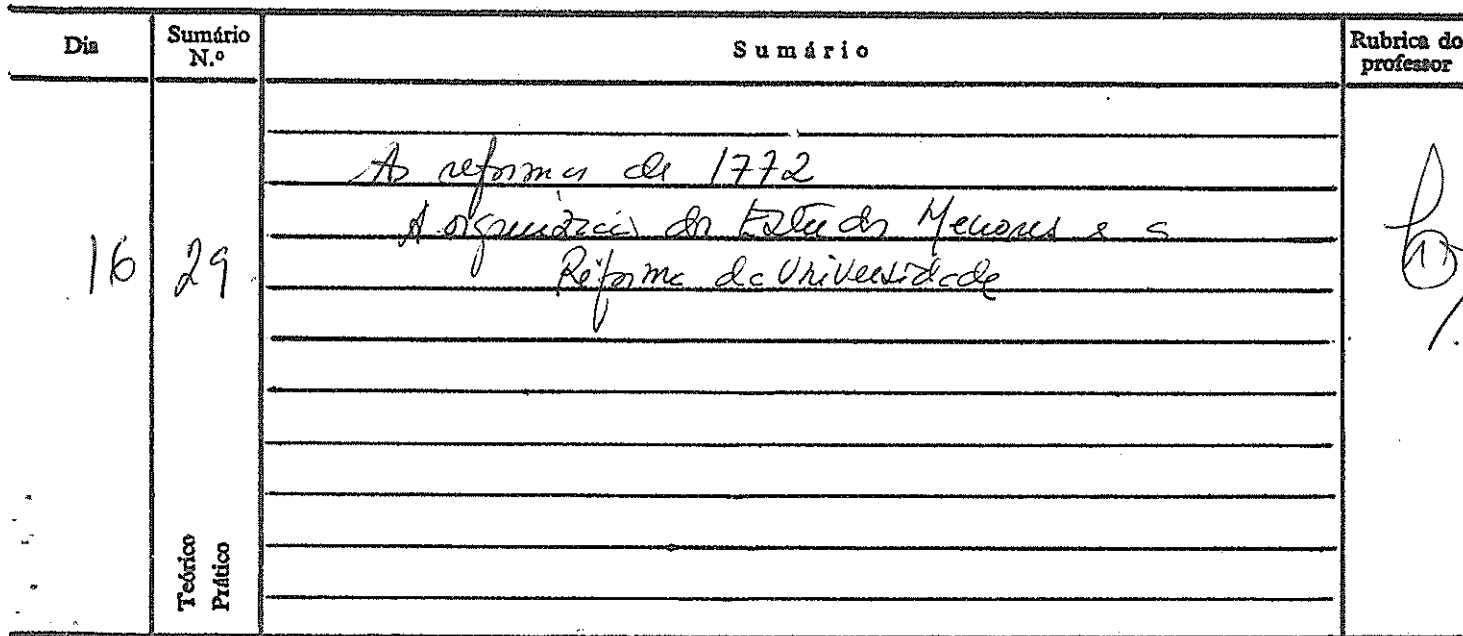 Dia
Sumário
N.º
Sumário
Rubrica do
professor
As reformas de 1772
A organização dos Estudos Menores e a
Reforma da Universidade
16
29
Teórico
Prático